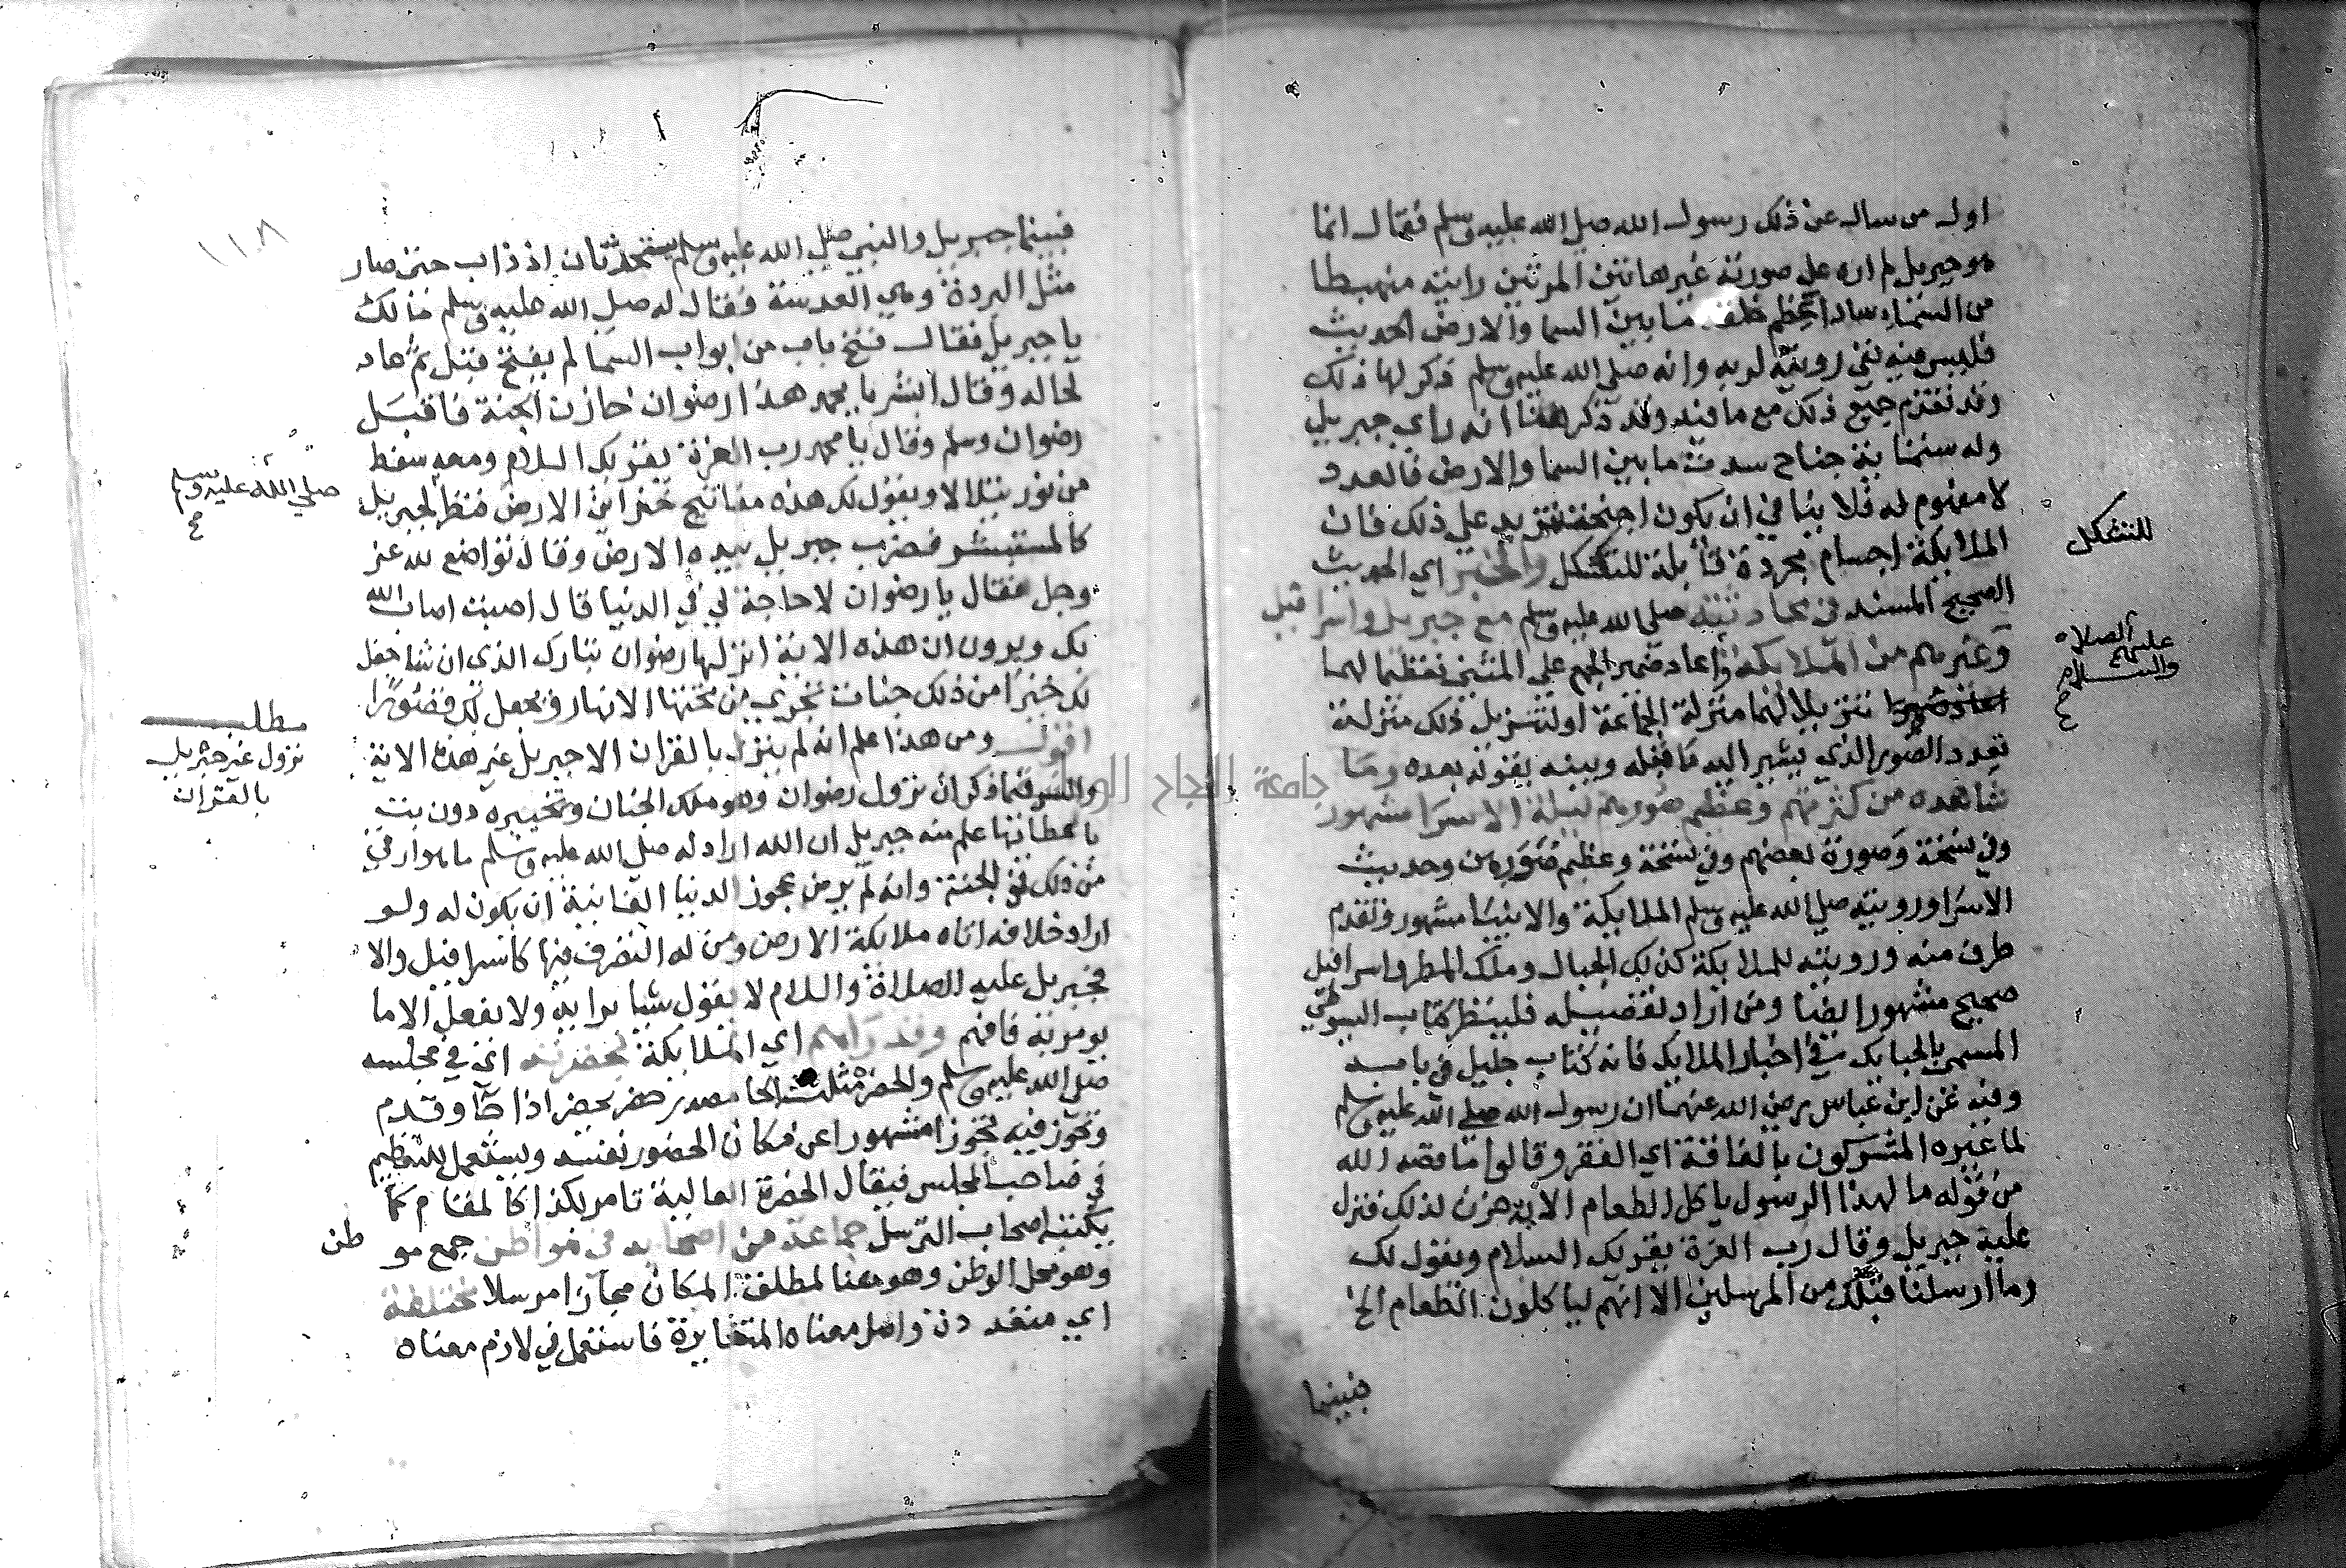 اول من سال عن ذلك رسول الله صلى الله عليه وسلم فقال انما
هو جبريل لم اره على صورته غير هاتين المرتين رايته منهبطا
من السماء سادا عظم خلقه ما بين السما والارض الحديث
فليس فيه نفي رويته لربه وانه صلى الله عليه وسلم ذكر لها ذلك
وقد تقدم جميع ذلك مع ما فيه وقد ذكر هنا انه راي جبريل
وله ستماية جناح سدت ما بين السما والارض فالعدد
لا مفهوم له فلا ينافي ان يكون اجنحته تزيد على ذلك فان
الملايكة اجسام مجردة قابلة للتشكل والخبر اي الحديث
للتشكل
الصحيح المسند في محادثته صلى الله عليه وسلم مع جبريل واسرافيل
وغيرهم من الملايكة واعاد ضمير الجمع على المثنى تعظيما لهما
عليهم الصلاه
والسلام
تنزيلا لهما منزلة الجماعة او لتنزيل ذلك منزلة
تعدد الصور الذي يشير اليه ما قبله وبينه بقوله بعده وما
شاهده من كثرتهم وعظم صورهم ليلة الاسرا مشهور
وفي نسخة وصورة بعضهم وفي نسخة وعظيم صورهن وحديث
الاسرا ورويته صلى الله عليه وسلم الملايكة والانبيا مشهور وتقدم
طرف منه ورويته للملايكة كذلك الجبال وملك المطر واسرافيل
صحيح مشهور ايضا ومن اراد تفصيله فلينظر كتاب السيوطي
المسمى بالحبايك في اخبار الملايك فانه كتاب جليل في بابه
وفيه عن ابن عباس رضي الله عنهما ان رسول الله صلى الله عليه وسلم
لما عيره المشركون بالفاقة اي الفقر وقالوا ما قصه الله
من قوله ما لهذا الرسول ياكل الطعام الاية حزن لذلك فنزل
عليه جبريل وقال رب العزة يقريك السلام ويقول لك
وما ارسلنا قبلك من المرسلين الا انهم لياكلون الطعام الخ
فبينما
١١٨
فبينما جبريل والنبي صلى الله عليه وسلم يتحدثان اذ ذاب حتى صار
مثل البردة وهي العدسة فقال له صلى الله عليه وسلم مالك
يا جبريل فقال فتح باب من ابواب السما لم يفتح قبل ثم عاد
لحاله وقال ابشر يا محمد هذا رضوان خازن الجنة فاقبل
رضوان وسلم وقال يا محمد رب العزة يقريك السلام ومعه سفط
صلى الله عليه وسلم
من نور يتلالا ويقول لك هذه مفاتيح خزاين الارض فنظر لجبريل
كالمستشير فضرب جبريل بيده الارض وقال تواضع لله عز
وجل فقال يا رضوان لا حاجة لي في الدنيا قال اصبت اصاب الله
بك ويرون ان هذه الاية انزلها رضوان تبارك الذي ان شا جعل
لك خيرا من ذلك جنات تجري من تحتها الانهار ويجعل لك قصورا
مطلب
نزول غير جبريل
بالقران
اقول ومن هذا علم انه لم ينزل بالقران الا جبريل غير هذه الاية
والسر فيما ذكر ان نزول رضوان وهو ملك الجنان وتخييره دون بت
باعطائها علم منه جبريل ان الله اراد له صلى الله عليه وسلم ما هو ارقي
من ذلك في الجنة وانه لم يرض بحوز الدنيا الفانية ان يكون له ولو
اراد خلافه اتاه ملايكة الارض ومن له التصرف فيها كاسرافيل والا
فجبريل عليه الصلاة والسلام لا يقول شيا برايه ولا يفعل الا ما
يومر به فافهم وقد راهم اي الملايكة بحضرته اي في مجلسه
صلى الله عليه وسلم والحضرة مثلث الحا مصدر حضر يحضر اذا جا وقدم
وتجوز فيه تجوزا مشهورا عن مكان الحضور نفسه ويستعمل للتعظيم
في صاحب المجلس فيقال الحضرة العالية تامر بكذا كالمقام كما
يكتبه اصحاب الترسل جماعة من اصحابه في مواطن جمع مو
طن
وهو محل الوطن وهو هنا لمطلق المكان مجازا مرسلا مختلفة
اي متعددة واصل معناه المتغايرة فاستعمل في لازم معناه